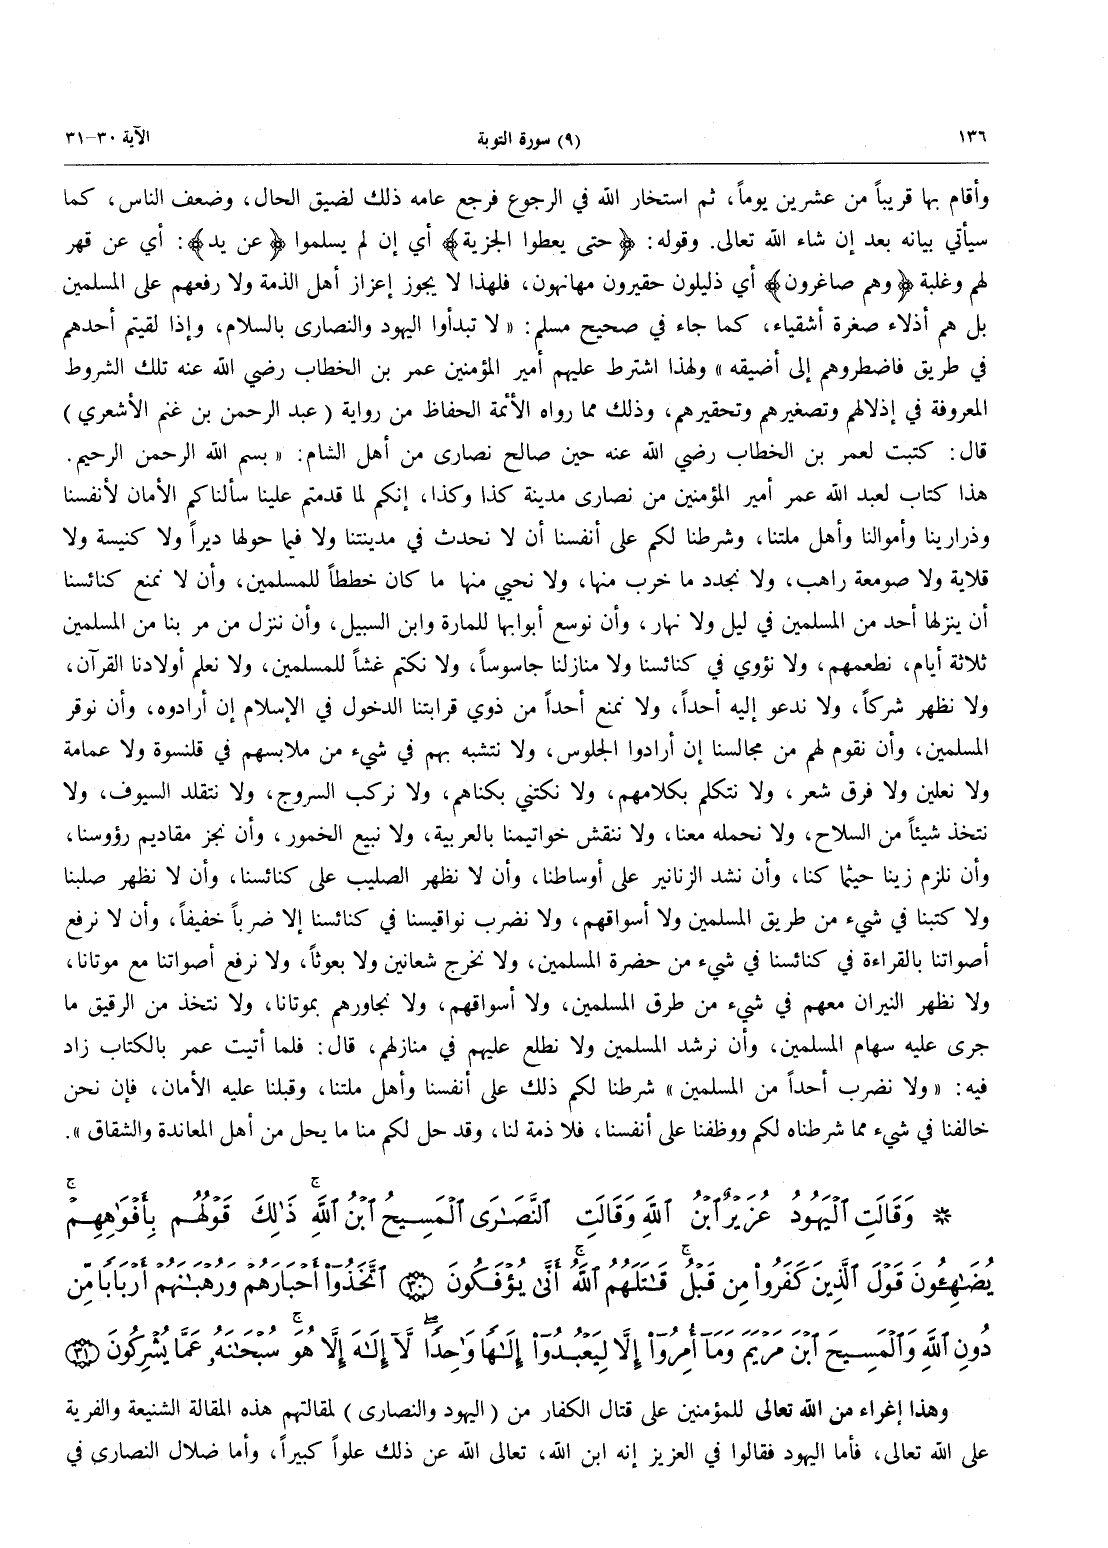 ١٣٦ (٩) سورة التوبة الآية ٣٠-٣١
وأقام بها قريباً من عشرين يوماً، ثم استخار الله في الرجوع فرجع عامه ذلك لضيق الحال، وضعف الناس، كما
سيأتي بيانه بعد إن شاء الله تعالى. وقوله: ﴿حتى يعطوا الجزية﴾ أي إن لم يسلموا ﴿عن يد﴾: أي عن قهر
لهم وغلبة ﴿وهم صاغرون﴾ أي ذليلون حقيرون مهانون، فلهذا لا يجوز إعزاز أهل الذمة ولا رفعهم على المسلمين
بل هم أذلاء صغرة أشقياء، كما جاء في صحيح مسلم: « لا تبدأوا اليهود والنصارى بالسلام، وإذا لقيتم أحدهم
في طريق فاضطروهم إلى أضيقه » ولهذا اشترط عليهم أمير المؤمنين عمر بن الخطاب رضي الله عنه تلك الشروط
المعروفة في إذلالهم وتصغيرهم وتحقيرهم، وذلك مما رواه الأئمة الحفاظ من رواية ( عبد الرحمن بن غنم الأشعري )
قال: كتبت لعمر بن الخطاب رضي الله عنه حين صالح نصارى من أهل الشام: « بسم الله الرحمن الرحيم.
هذا كتاب لعبد الله عمر أمير المؤمنين من نصارى مدينة كذا وكذا، إنكم لما قدمتم علينا سألناكم الأمان لأنفسنا
وذرارينا وأموالنا وأهل ملتنا، وشرطنا لكم على أنفسنا أن لا نحدث في مدينتنا ولا فيما حولها ديراً ولا كنيسة ولا
قلاية ولا صومعة راهب، ولا نجدد ما خرب منها، ولا نحيي منها ما كان خططاً للمسلمين، وأن لا نمنع كنائسنا
أن ينزلها أحد من المسلمين في ليل ولا نهار، وأن نوسع أبوابها للمارة وابن السبيل، وأن ننزل من مر بنا من المسلمين
ثلاثة أيام، نطعمهم، ولا نؤوي في كنائسنا ولا منازلنا جاسوساً، ولا نكتم غشاً للمسلمين، ولا نعلم أولادنا القرآن،
ولا نظهر شركاً، ولا ندعو إليه أحداً، ولا نمنع أحداً من ذوي قرابتنا الدخول في الإسلام إن أرادوه، وأن نوقر
المسلمين، وأن نقوم لهم من مجالسنا إن أرادوا الجلوس، ولا نتشبه بهم في شيء من ملابسهم في قلنسوة ولا عمامة
ولا نعلين ولا فرق شعر، ولا نتكلم بكلامهم، ولا نكتني بكناهم، ولا نركب السروج، ولا نتقلد السيوف، ولا
نتخذ شيئاً من السلاح، ولا نحمله معنا، ولا ننقش خواتيمنا بالعربية، ولا نبيع الخمور، وأن نجز مقاديم رؤوسنا،
وأن نلزم زينا حيثما كنا، وأن نشد الزنانير على أوساطنا، وأن لا نظهر الصليب على كنائسنا، وأن لا نظهر صلبنا
ولا كتبنا في شيء من طريق المسلمين ولا أسواقهم، ولا نضرب نواقيسنا في كنائسنا إلا ضرباً خفيفاً، وأن لا نرفع
أصواتنا بالقراءة في كنائسنا في شيء من حضرة المسلمين، ولا نخرج شعانين ولا بعوثاً، ولا نرفع أصواتنا مع موتانا،
ولا نظهر النيران معهم في شيء من طرق المسلمين، ولا أسواقهم، ولا نجاورهم بموتانا، ولا نتخذ من الرقيق ما
جرى عليه سهام المسلمين، وأن نرشد المسلمين ولا نطلع عليهم في منازلهم، قال: فلما أتيت عمر بالكتاب زاد
فيه: « ولا نضرب أحداً من المسلمين » شرطنا لكم ذلك على أنفسنا وأهل ملتنا، وقبلنا عليه الأمان، فإن نحن
خالفنا في شيء مما شرطناه لكم ووظفنا على أنفسنا، فلا ذمة لنا، وقد حل لكم منا ما يحل من أهل المعاندة والشقاق ».
* وَقَالَتِ ٱلْيَهُودُ عُزَيْرٌ ٱبْنُ ٱللَّهِ وَقَالَتِ ٱلنَّصَٰرَى ٱلْمَسِيحُ ٱبْنُ ٱللَّهِۖ ذَٰلِكَ قَوْلُهُم بِأَفْوَٰهِهِمْۖ
يُضَٰهِـُٔونَ قَوْلَ ٱلَّذِينَ كَفَرُوا۟ مِن قَبْلُۚ قَٰتَلَهُمُ ٱللَّهُۚ أَنَّىٰ يُؤْفَكُونَ ﴿٣٠﴾ ٱتَّخَذُوٓا۟ أَحْبَارَهُمْ وَرُهْبَٰنَهُمْ أَرْبَابًا مِّن
دُونِ ٱللَّهِ وَٱلْمَسِيحَ ٱبْنَ مَرْيَمَ وَمَآ أُمِرُوٓا۟ إِلَّا لِيَعْبُدُوٓا۟ إِلَٰهًا وَٰحِدًاۖ لَّآ إِلَٰهَ إِلَّا هُوَۚ سُبْحَٰنَهُۥ عَمَّا يُشْرِكُونَ ﴿٣١﴾
وهذا إغراء من الله تعالى للمؤمنين على قتال الكفار من ( اليهود والنصارى ) لمقالتهم هذه المقالة الشنيعة والفرية
على الله تعالى، فأما اليهود فقالوا في العزيز إنه ابن الله، تعالى الله عن ذلك علواً كبيراً، وأما ضلال النصارى في